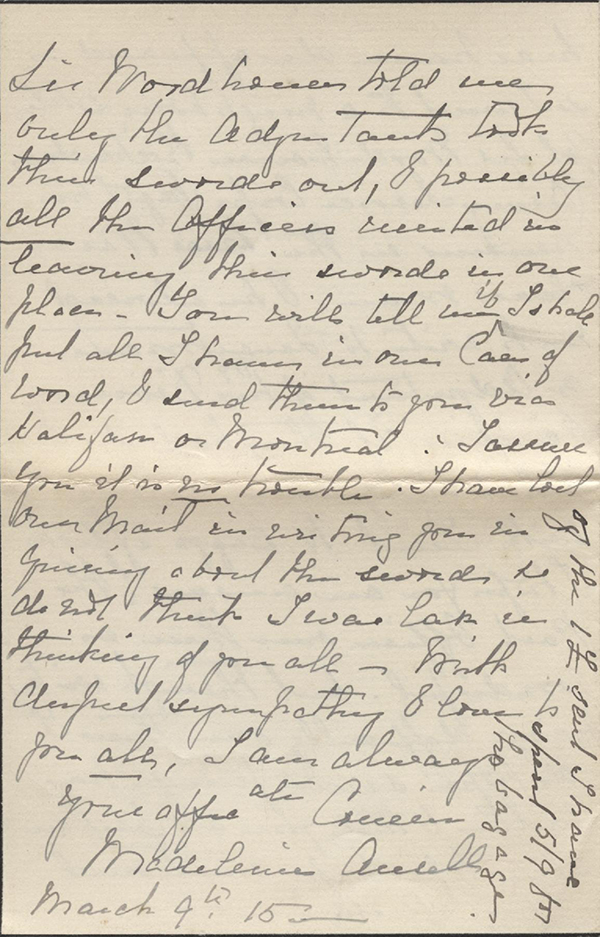 Sir Woodhouse told me
only the Adjutants took
their swords out, & possibly
all the Officers united in
leaving their swords in one
place - You will tell me if I shall
put all I have in one Case of
wood, & send them to you via
Halifax or Montreal : I assure
you it is no trouble. I have lost
one Mail in writing you in
quiring about the swords so
do not think I was late in
thinking of you all - With
deepest sympathy & love to
you all, I am always
your affec ate Cousin
Madeleine Ansell
March 9th 15
of the 1£ sent I have
spent 5/9 for
the bagages.